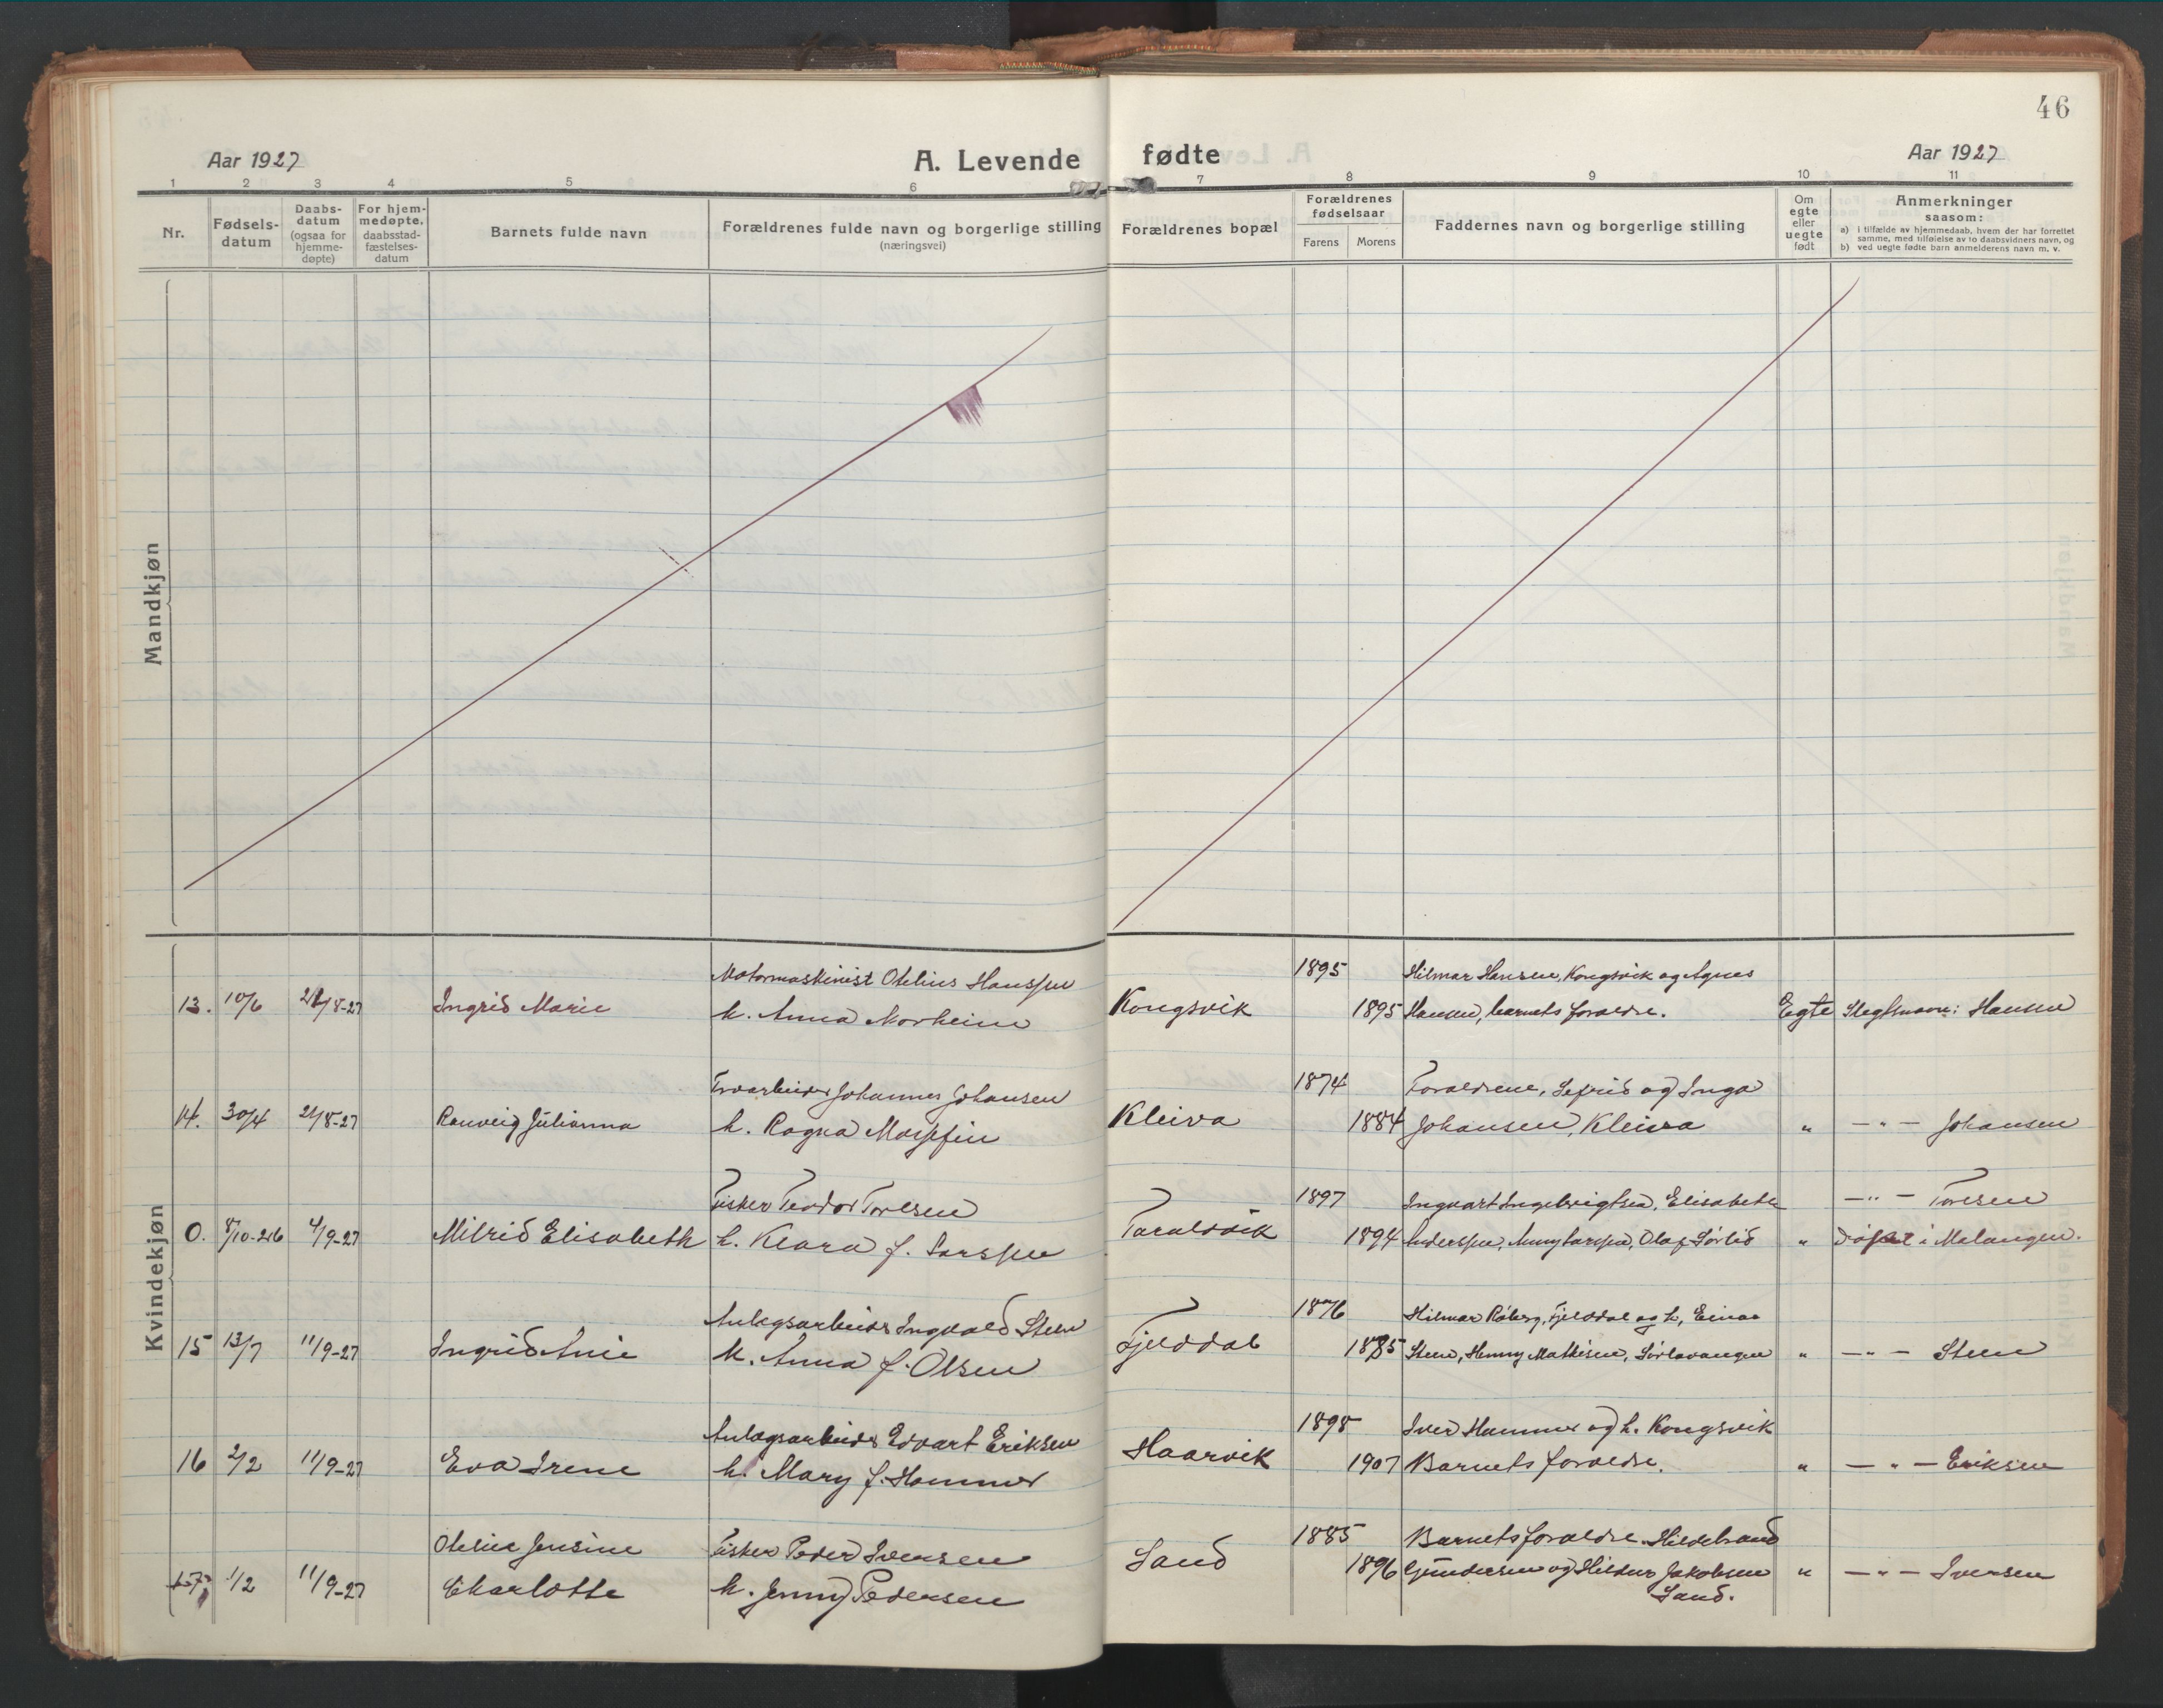 46
Aar 1927
A. Levende fødte
Aar 1927
1 2 3 4 5 6 7 8 9 10 11
Nr.
Fødsels-
datum
Daabs-
datum
(ogsaa for
hjemme-
døpte)
For hjem-
medøpte,
daabsstad-
fæstelses-
datum
Barnets fulde navn
Forældrenes fulde navn og borgerlige stilling
(næringsvei)
Forældrenes bopæl
Forældrenes
fødselsaar
Farens Morens
Faddernes navn og borgerlige stilling
Om
egte
eller
uegte
født
Anmerkninger
saasom:
a) i tilfælde av hjemmedaab, hvem der har forrettet
samme, med tilføielse av to daabsvidners navn, og
b) ved uegte fødte barn anmelderens navn m. v.
Mandkjøn
Kvindekjøn
Motormaskinist Otelius Hanssen 1895 Hilmar Hansen, Kongsvik og Agnes
13. 10/6 21/8-27 Ingrid Marie h. Anna Norheim Kongsvik 1895 Hansen, barnets foreldre. Egte Slegtsnavn: Hansen
Johannes Johansen 1874 Foreldrene, Sefrid og Inga
14. 30/4 21/8-27 Ranveig Julianna h. Ragna Kleiva 1884 Johansen, Kleiva " — " — Johansen
Fisker Teodor Toresen 1897 Ingvart Ingebrigtsen, Elisabeth — " — Toresen
0. 8/10-26 4/9-27 Milrid Elisabeth h. Klara f. Larssen Taraldsvik 1894 Anderssen, Anny Larssen, Olaf Sørlid " Døpt i Malangen.
Anlegsarbeider Ingvald Steen 1876 Hilmar Roberg, Fjelddal og h, Einar
15 13/7 11/9-27 Ingrid Anie h. Anna f. Olsen Fjelddal 1885 Steen, Henny Mathisen, Sørlavangen " — " — Steen
Anlægsarbeider Edvart Eriksen 1898 Iver Hammer og h. Kongsvik
16 2/2 11/9-27 Eva Irene h. Mary f. Hammer Haarvik 1907 Barnets foreldre. " — " — Eriksen
Otelie Jensine Fisker Peder Iversen Sand 1885 Barnets foreldre. Hildebrand
17, 1/2 11/9-27 Charlotte h. Jenny Pedersen 1896 Gundersen og Hildur Jakobsen " — " — Iversen
Sand.